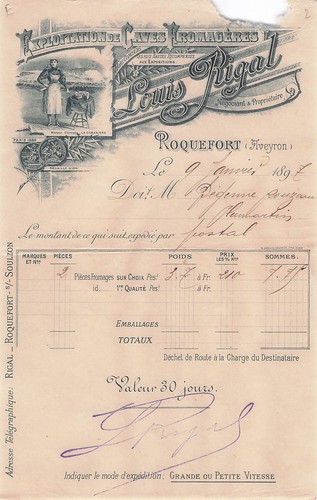 Exploitation de Caves Fromagères
Les plus hautes récompenses
aux Expositions
Louis Rigal
Négociant & Propriétaire
PARIS 1889
MÉDAILLE D'OR
ROQUEFORT (Aveyron)
Le 9 Janvier 1897
Doit M
Le montant de ce qui suit, expédié par postal
MARQUES ET Nos PIÈCES POIDS PRIX LES % Kos SOMMES
2 Pièces Fromages SUR CHOIX Pest 3.7 à Fr. 210 7.75
id. 1re QUALITÉ Pest à Fr.
EMBALLAGES
TOTAUX
Déchet de Route à la Charge du Destinataire
Valeur 30 jours.
L Rigal
Indiquer le mode d'expédition: GRANDE OU PETITE VITESSE
Adresse Télégraphique: RIGAL _ ROQUEFORT-S/- SOULZON